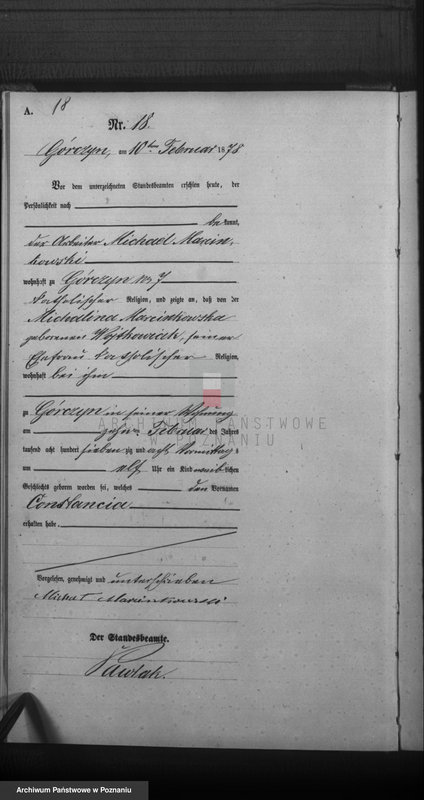 A. 18
Nr. 18.
Górczyn, am 10ten Februar 1878
Vor dem unterzeichneten Standesbeamten erschien heute, der
Persönlichkeit nach
bekannt,
der Arbeiter Michael Marcin-
kowski
wohnhaft zu Górczyn No 7
katholischer Religion, und zeigte an, daß von der
Michalina Marcinkowska
geborenen Wojtkowiak, seiner
Ehefrau katholischer Religion,
wohnhaft bei ihm
zu Górczyn in seiner Wohnung
am zehn Februar des Jahres
tausend acht hundert siebenzig und acht Vormittag s
um elf Uhr ein Kind weiblichen
Geschlechts geboren worden sei, welches den Vornamen
Constancia
erhalten habe.
Vorgelesen, genehmigt und unterschrieben
Michał Marcinkowski
Der Standesbeamte.
Pawlak.
ARCHIWUM PAŃSTWOWE
W POZNANIU
Archiwum Państwowe w Poznaniu